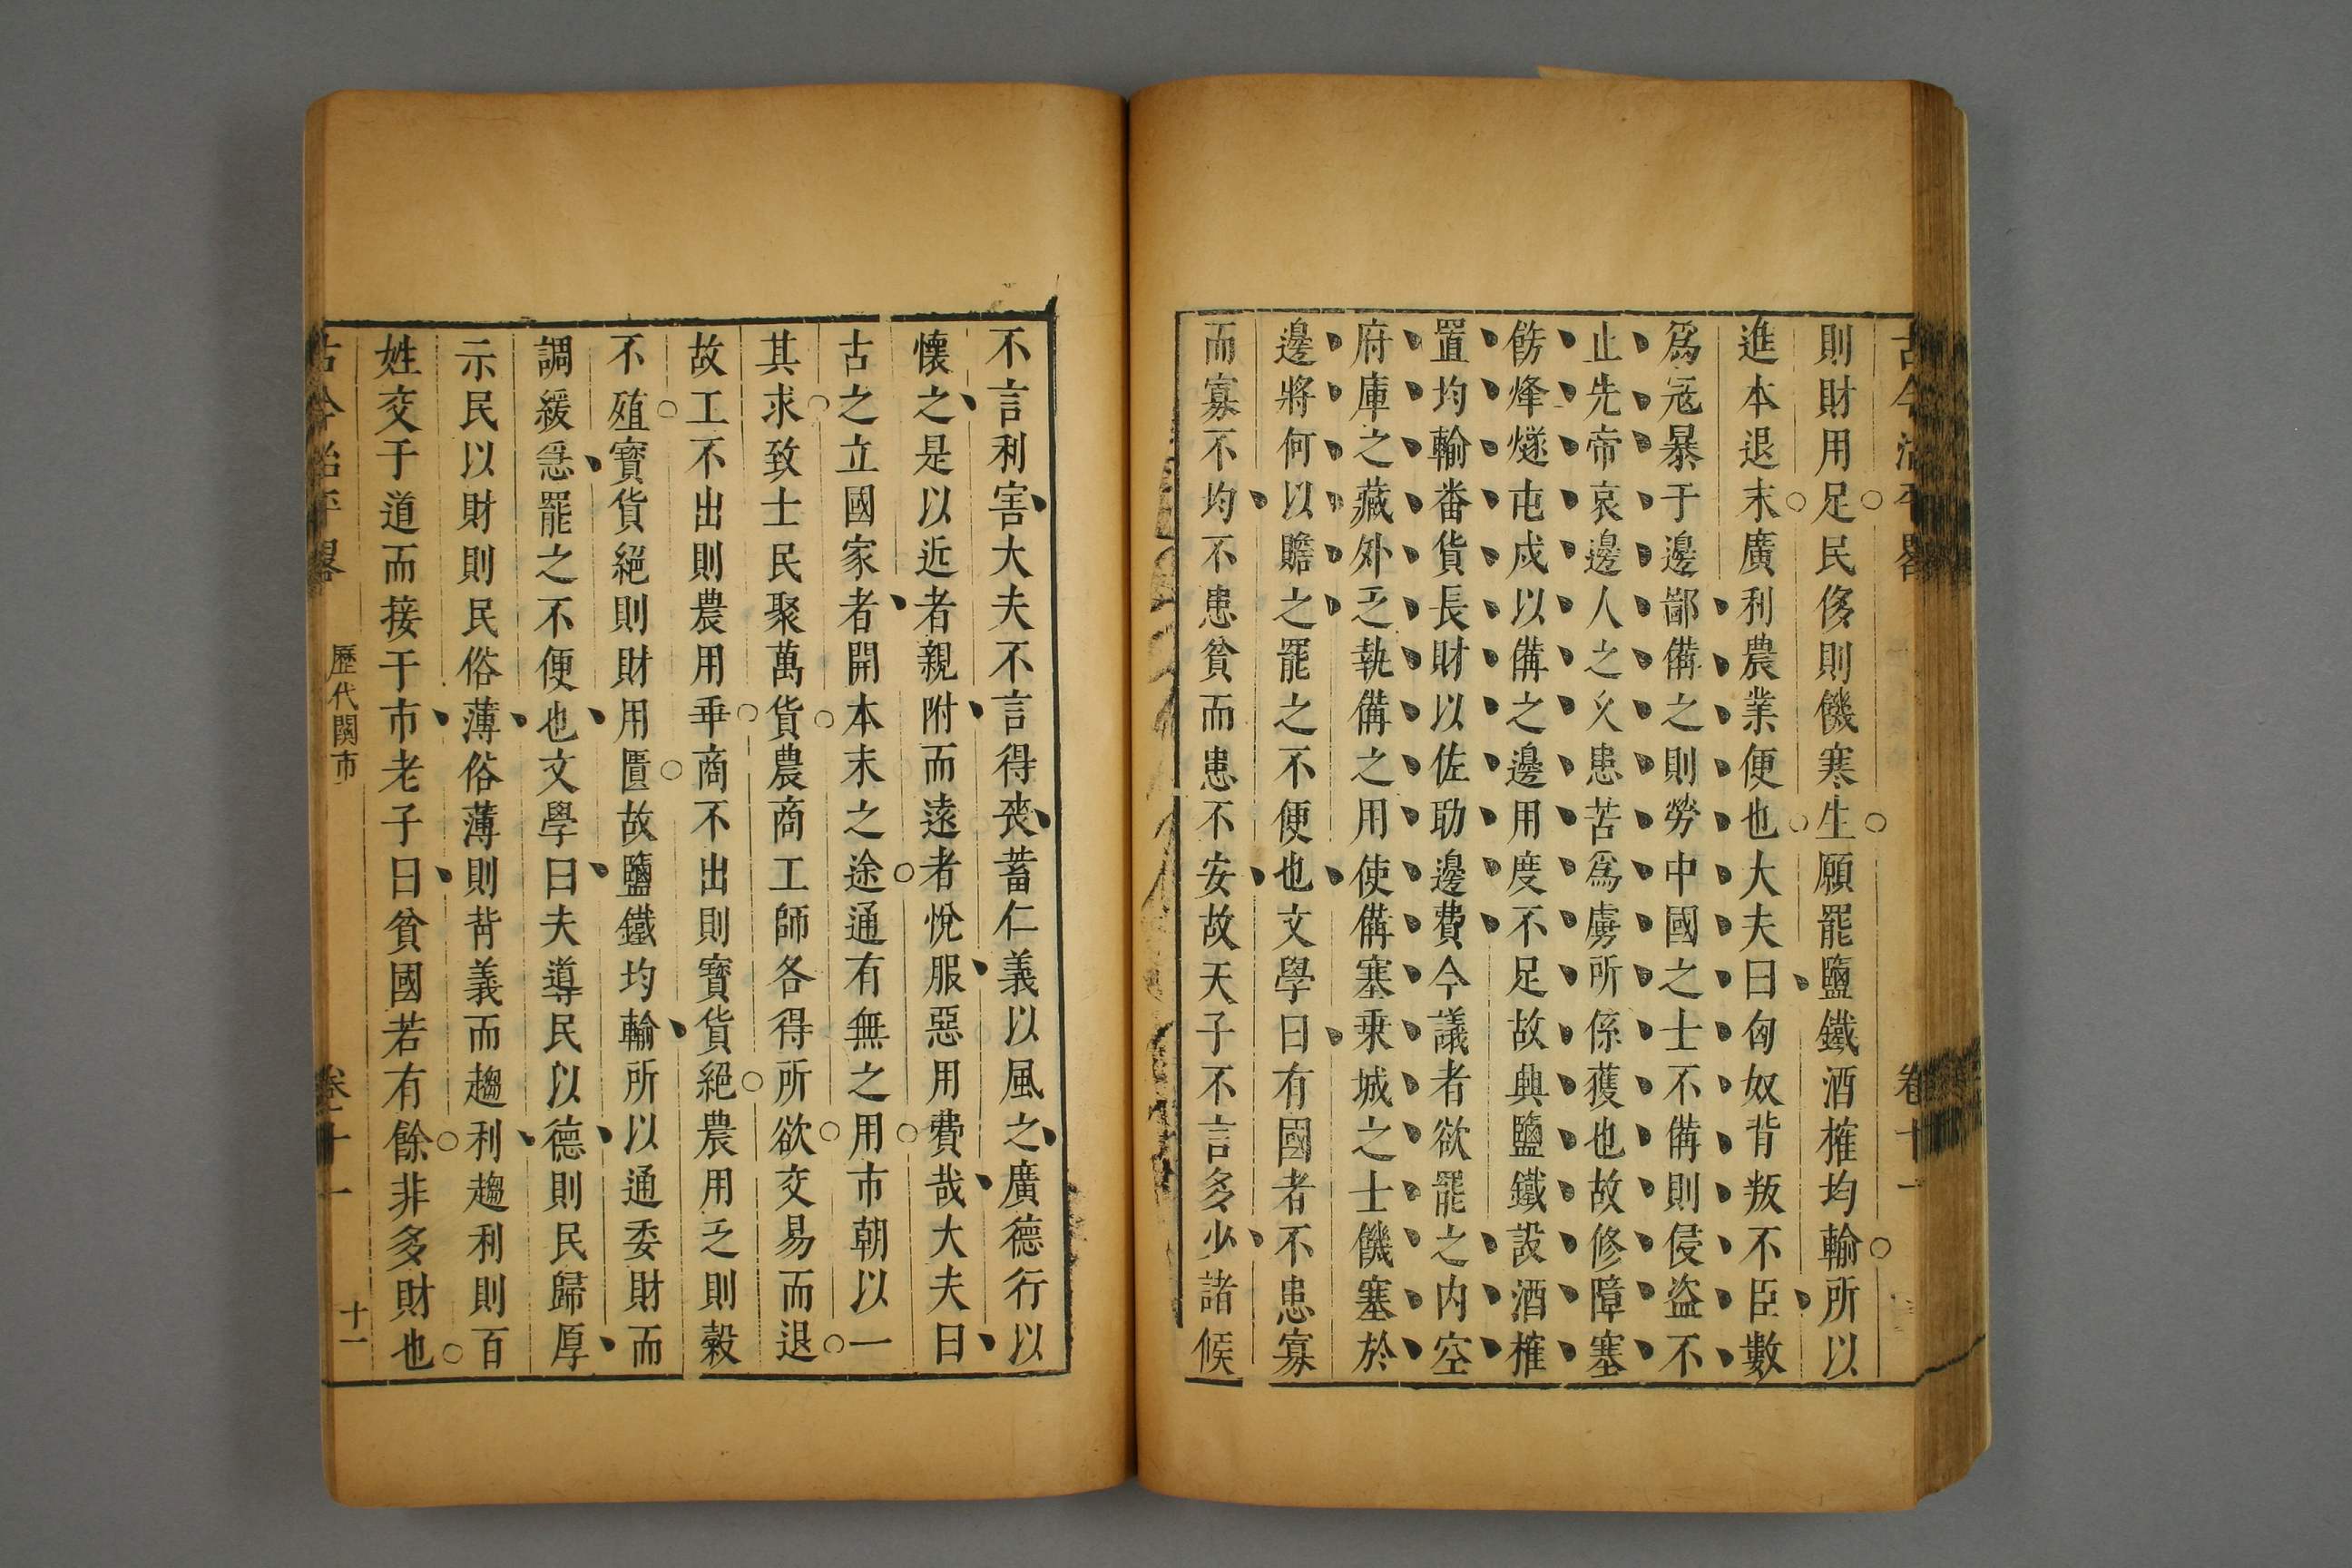 古今治平畧 卷十一
則財用足民侈則饑寒生願罷鹽鐵酒榷均輸所以
進本退末廣利農業便也大夫曰匈奴背叛不臣數
爲冦暴于邊鄙備之則勞中國之士不備則侵盜不
止先帝哀邊人之久患苦爲虜所係獲也故修障塞
飭烽燧屯戍以備之邊用度不足故興鹽鐵設酒榷
置均輸畨貨長財以佐助邊費今議者欲罷之内空
府庫之藏外乏執備之用使備塞乗城之士饑塞於
邊將何以贍之罷之不便也文學曰有國者不患寡
而寡不均不患貧而患不安故天子不言多少諸候
不言利害大夫不言得喪蓄仁義以風之廣德行以
懷之是以近者親附而遠者悅服惡用費哉大夫曰
古之立國家者開本末之途通有無之用市朝以一
其求致士民聚萬貨農商工師各得所欲交易而退
故工不出則農用乖商不出則寶貨絕農用乏則穀
不殖寶貨絕則財用匱故鹽鐵均輸所以通委財而
調緩急罷之不便也文學曰夫導民以德則民歸厚
示民以財則民俗薄俗薄則背義而趨利趨利則百
姓交于道而接于市老子曰貧國若有餘非多財也
古今治平畧 歷代関市 卷十一 十一